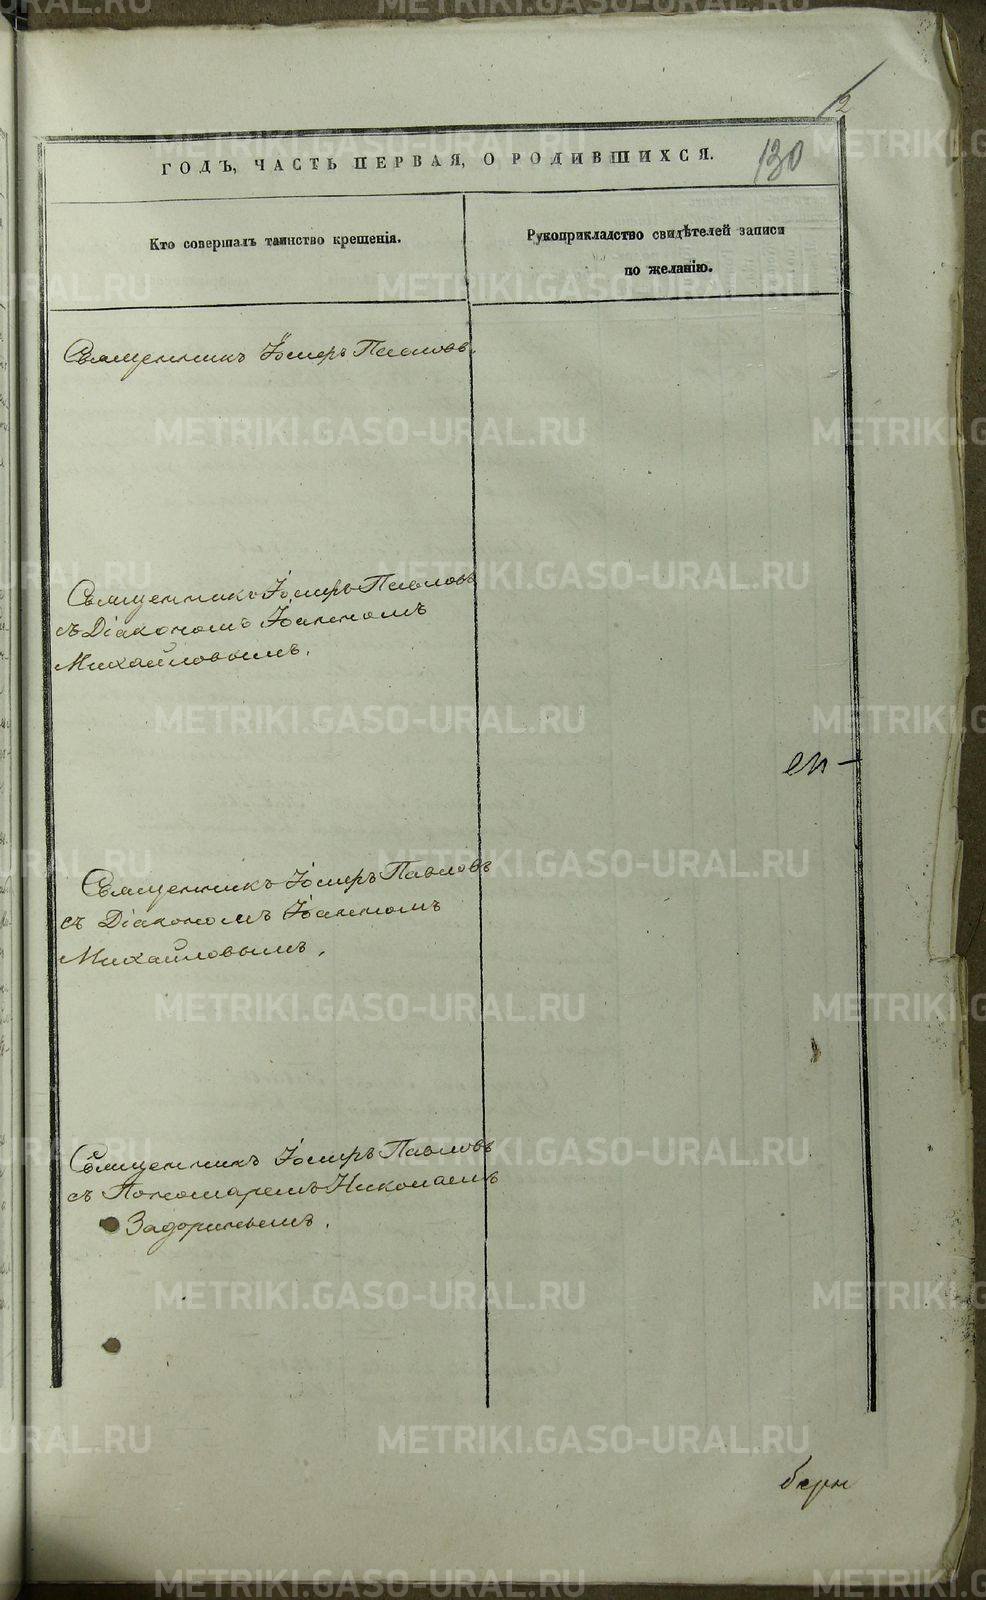 2
ГОДЪ, ЧАСТЬ ПЕРВАЯ, О РОДИВШИХСЯ.
130
Кто совершалъ таинство крещенія.
Рукоприкладство свидѣтелей записи
по желанію.
Священникъ Іосифъ Павловъ.
Священникъ Іосифъ Павловъ
съ Діакономъ Іоанномъ
Михайловымъ.
Священникъ Іосифъ Павловъ
съ Діакономъ Іоанномъ
Михайловымъ.
Священникъ Іосифъ Павловъ
съ Пономаремъ Николаемъ
Задоринымъ.
METRIKI.GASO-URAL.RU